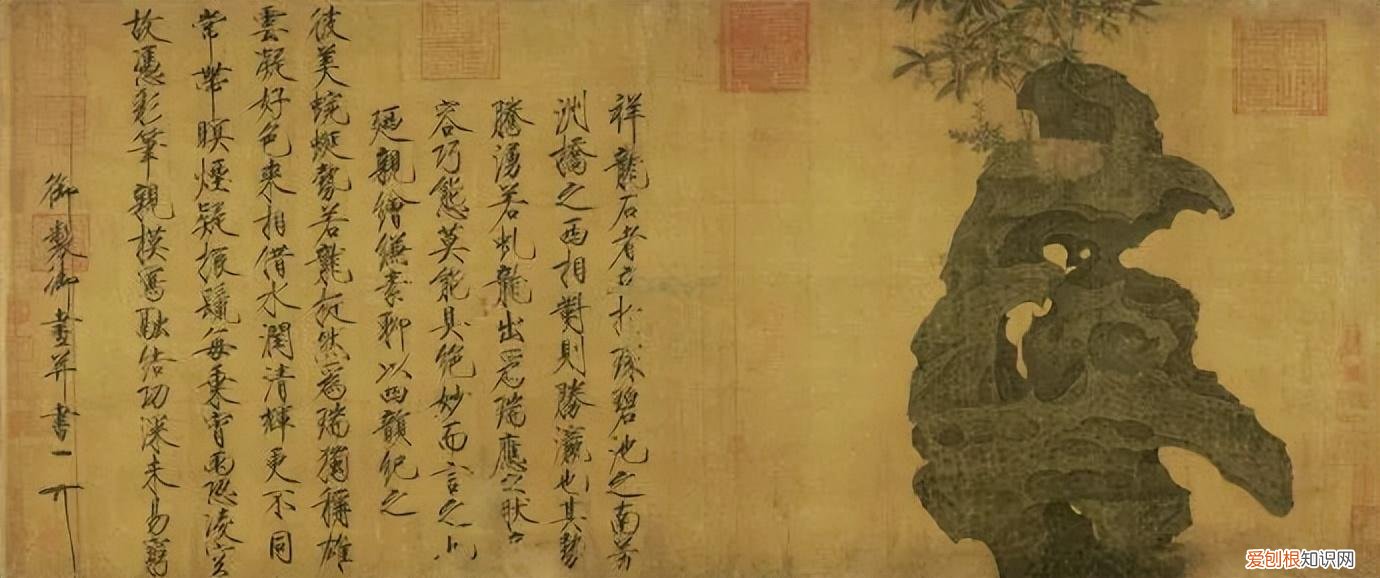 祥龍石者立於環碧池之南芳
洲橋之西相對則勝瀛也其勢
騰湧若虬龍出爲瑞應之狀奇
容巧態莫能具絕妙而言之也
廼親繪縑素聊以四韻紀之
彼美蜿蜒勢若龍挺然爲瑞獨稱雄
雲凝好色來相借水潤清輝更不同
常帶暝煙疑振鬣每乘宵雨恐凌空
故憑彩筆親模寫融結功深未易窮
御製御畫并書
爱刨根知识网